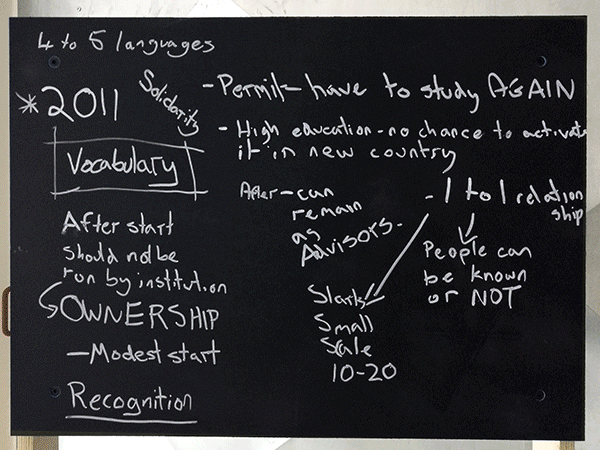 4 to 5 languages
*2011
Solidarity
- Permit - have to study AGAIN
- High education - no chance to activate
it in new country
Vocabulary
After start
should not be
run by institution
OWNERSHIP
- Modest start
Recognition
After - can
remain
as
Advisors.
- 1 to 1 relation
ship
People can
be known
or NOT
Starts
Small
Scale
10-20